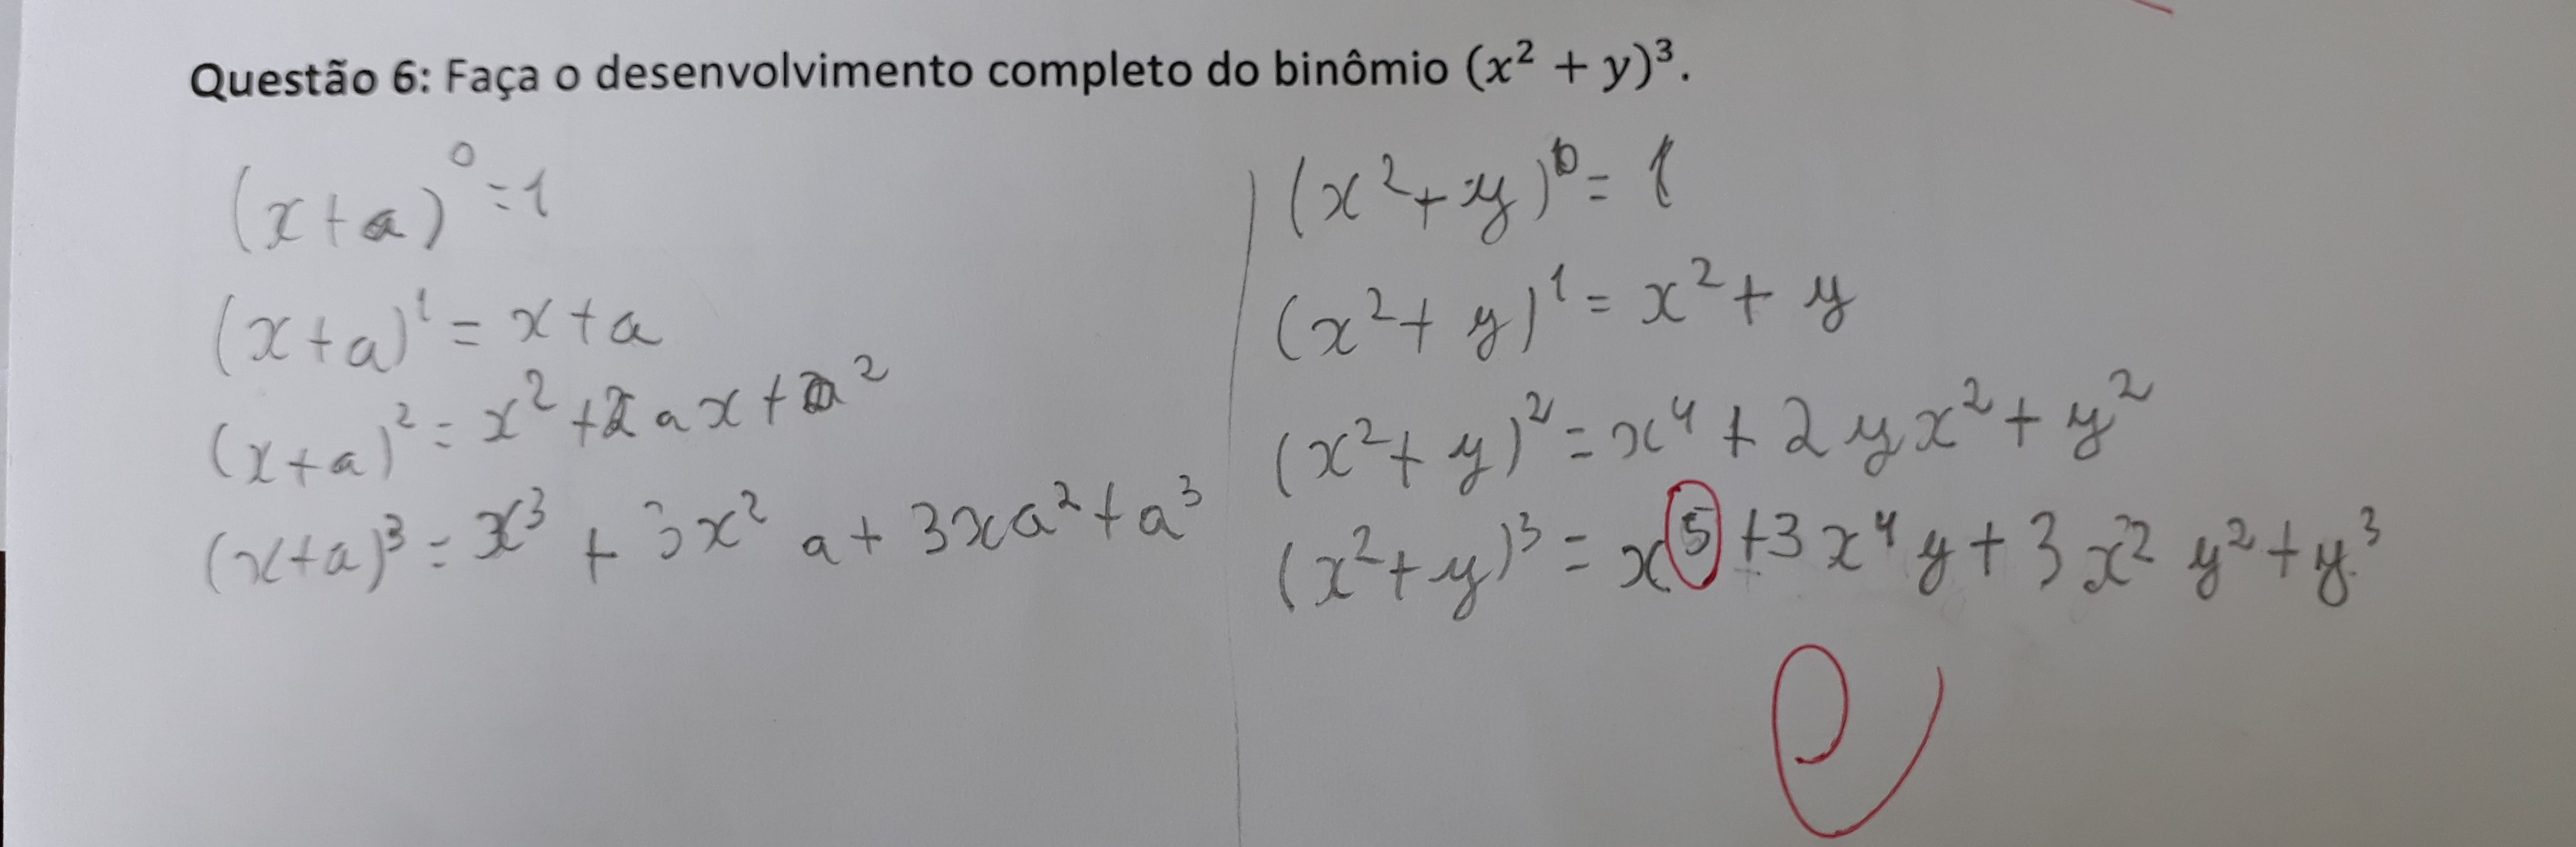 Questão 6: Faça o desenvolvimento completo do binômio (x² + y)³.
(x+a)⁰=1
(x+a)¹ = x+a
(x+a)² = x²+2ax+a²
(x+a)³ = x³ + 3x² a + 3xa²+a³
(x²+y)⁰ = 1
(x²+y)¹ = x²+y
(x²+y)² = x⁴ + 2yx²+y²
(x²+y)³ = x⁵+3x⁴y+3x² y²+y³